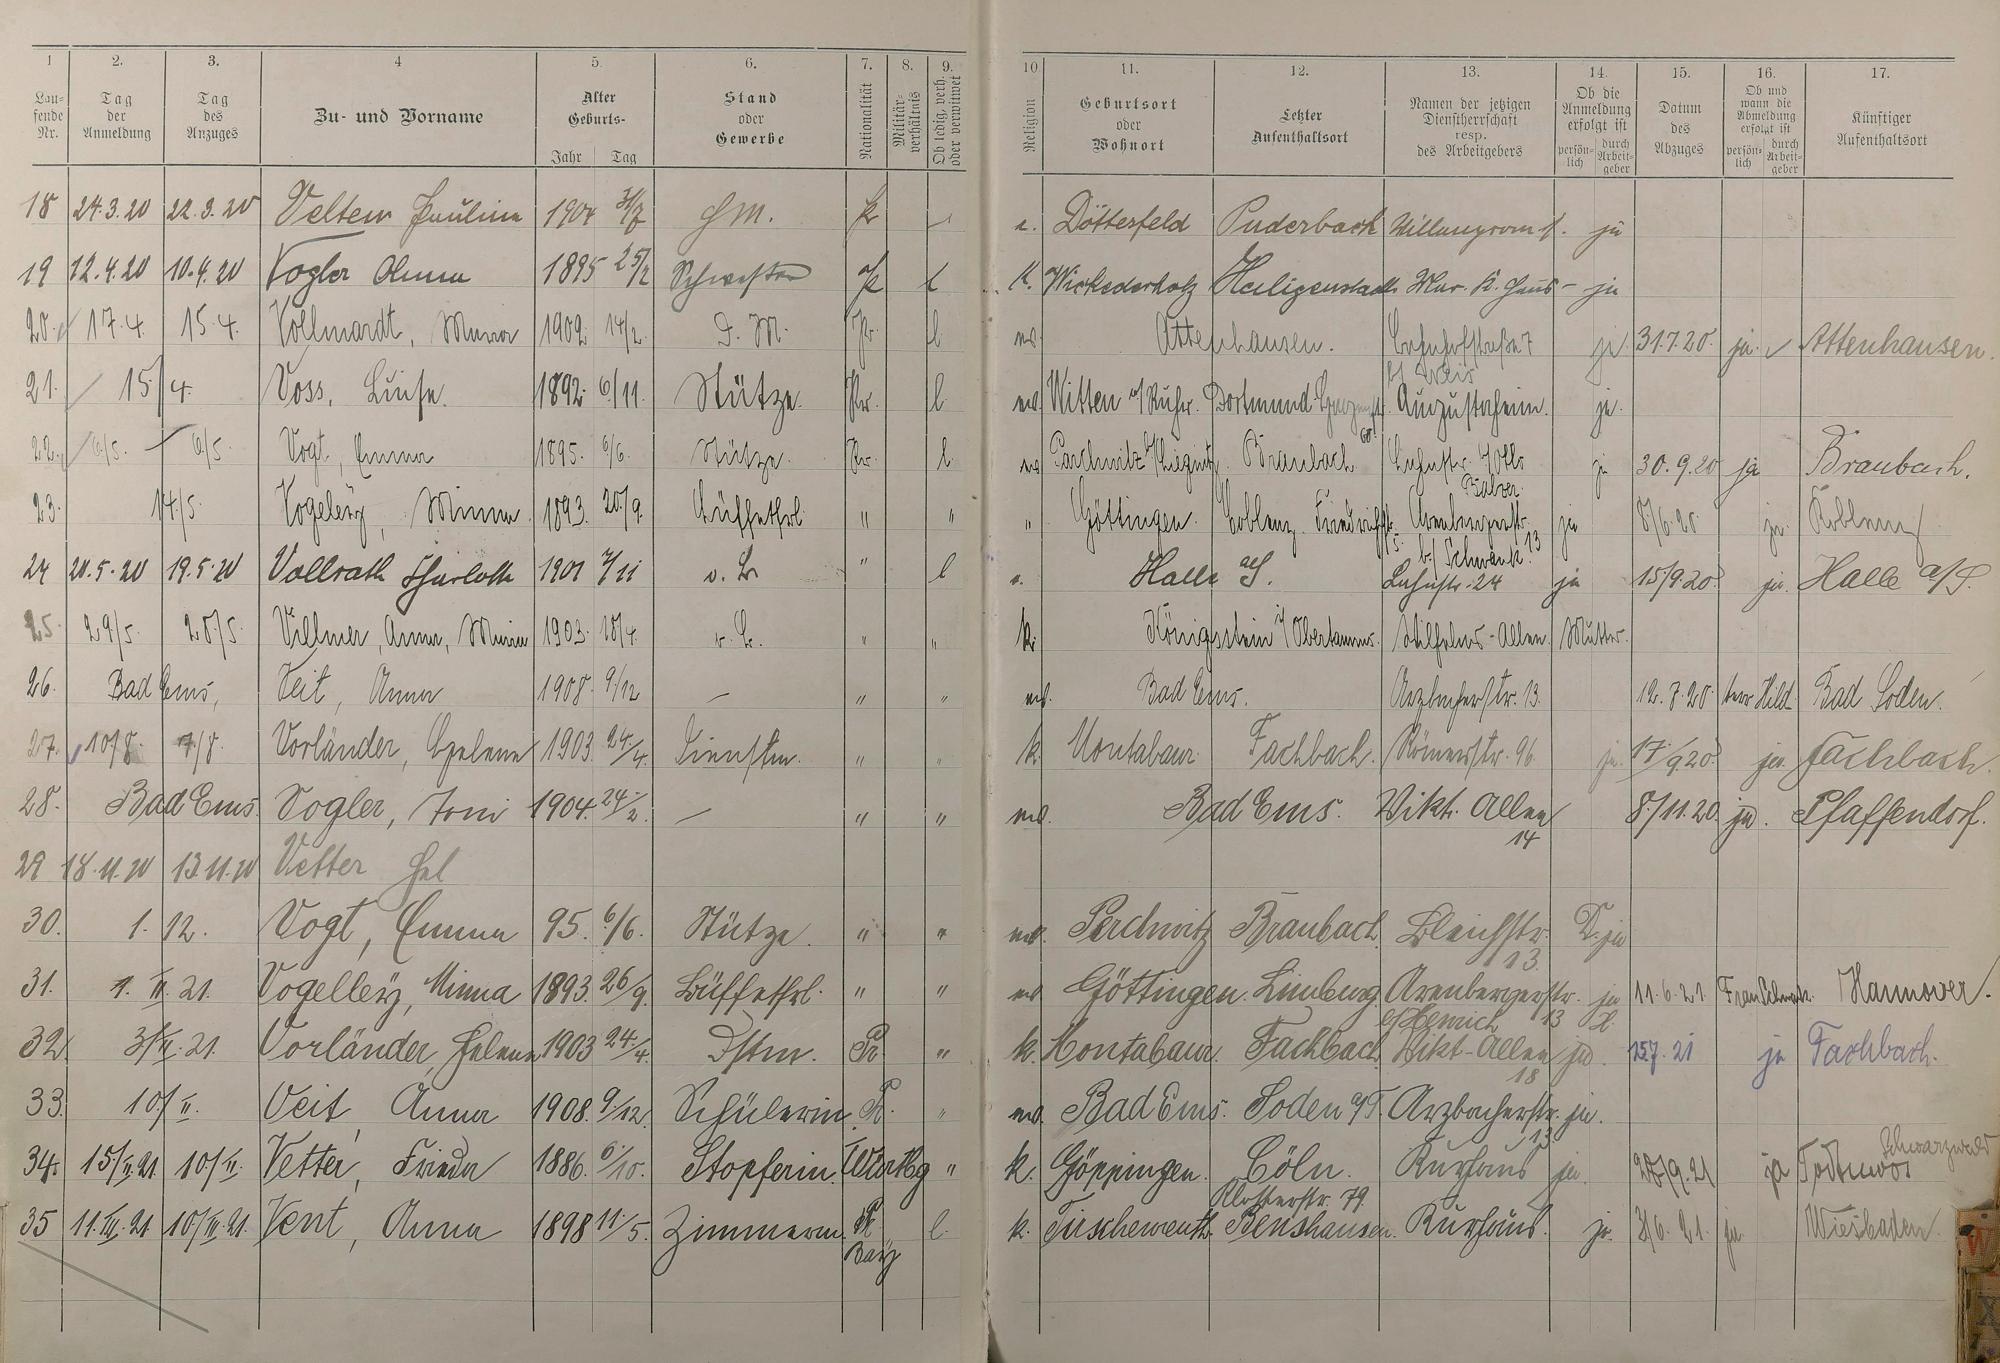 1 2. 3. 4 5. 6. 7. 8. 9. 10 11. 12. 13. 14. 15. 16. 17.
Lau-
fende
Nr.
Tag
der
Anmeldung
Tag
des
Anzuges
Zu- und Vorname
Alter
Geburts-
Jahr Tag
Stand
oder
Gewerbe
Nationalität
Militär-
verhältnis
Ob ledig, verh.
oder verwitwet
Religion
Geburtsort
oder
Wohnort
Letzter
Aufenthaltsort
Namen der jetzigen
Dienstherrschaft
resp.
des Arbeitgebers
Ob die
Anmeldung
erfolgt ist
persön-
lich
durch
Arbeit-
geber
Datum
des
Abzuges
Ob und
wann die
Abmeldung
erfolgt ist
persön-
lich
durch
Arbeit-
geber
Künftiger
Aufenthaltsort
18 24.3.20 22.3.20 Velten Pauline 1904 Dötterfeld Puderbach ja
19 12.4.20 10.4.20 Vogler 1895 25/2 Schwester k. Heiligenstadt ja
20. 17.4. 15.4. Vollmardt, Maria 1902 14/2. D. M. Pr. l. Attenhausen. Bahnhofstraße 7 ja 31.7.20. ja. Attenhausen.
21. 15/4. Voss, Luise. 1892. 6/11. Stütze. Pr. l. Witten a/Ruhr. Dortmund Augustaheim. ja.
22. 6/5. 6/5. Vogt, Emma 1895. 6/6. Stütze. Pr. l. Braubach ja 30.9.20 ja Braubach.
23. 14/5. Vogeley, Minna 1893. 20/9. Büffetfrl. " " " Göttingen. Coblenz, Friedrichstr. Arenbergerstr. 13 ja ja. Koblenz
24 20.5.20 19.5.20 Vollrath Charlotte 1901 o. B. " l Halle a/S.
b/ Schwank.
Bahnstr. 24 ja 15/9.20. ja. Halle a/S.
25. 29/5. 28/5. Villmer, Anna, Maria 1903. 18/4. o. B. " " k. Königstein i/ Obertaunus. Wilhelms-Allee. Mutter.
26. Bad Ems, Veit, Anna 1908. 9/12 — " " ev. Bad Ems. Arzbacherstr. 13. 12.7.20. Bad Soden.
27. 10/8. 7/8. Vorländer, Helene 1903. 24./4. Dienstm. " " k. Montabaur Fachbach. Römerstr. 96. ja. 17/9.20. ja Fachbach.
28. Bad Ems. Vogler, Toni 1904. 24./2. — " " ev. Bad Ems. Vikt. Allee
14
8./11.20. ja. Pfaffendorf.
29 18.11.20 13.11.20 Vetter Hel
30. 1. 12. Vogt, Emma 95. 6/6. Stütze. " " ev. Braubach. Bleichstr.
13.
ja
31. 1. II. 21. Vogelley, Minna 1893. 26/9. Büffetfrl. " " ev Göttingen. Limburg. Arenbergerstr.
13
ja 11.6.21. Frau Hannover.
32. 3/II. 21. Vorländer, Helene 1903 24./4. Dstm. Pr. " k. Montabaur. Fachbach. Vikt-Allee
18
ja. 15.7.21 ja Fachbach.
33. 10./II. Veit, Anna 1908. 9/12. Schülerin Pr. " ev. Bad Ems. Soden a/T. Arzbacherstr.
13.
ja.
34. 15./II.21. 10/II. Vetter, Frieda 1886. 6./10. Stopferin. Württbg " k. Göppingen. Cöln.
Klosterstr. 79.
Kurhaus ja. 20/9.21 ja Todtmoos
Schwarzwald
35 11.III.21 10/III.21. Vent, Anna 1898 11./5. Zimmerm. Pr. l. k. Kurhaus. ja. 3/6.21. ja Wiesbaden.
Bay
W
X